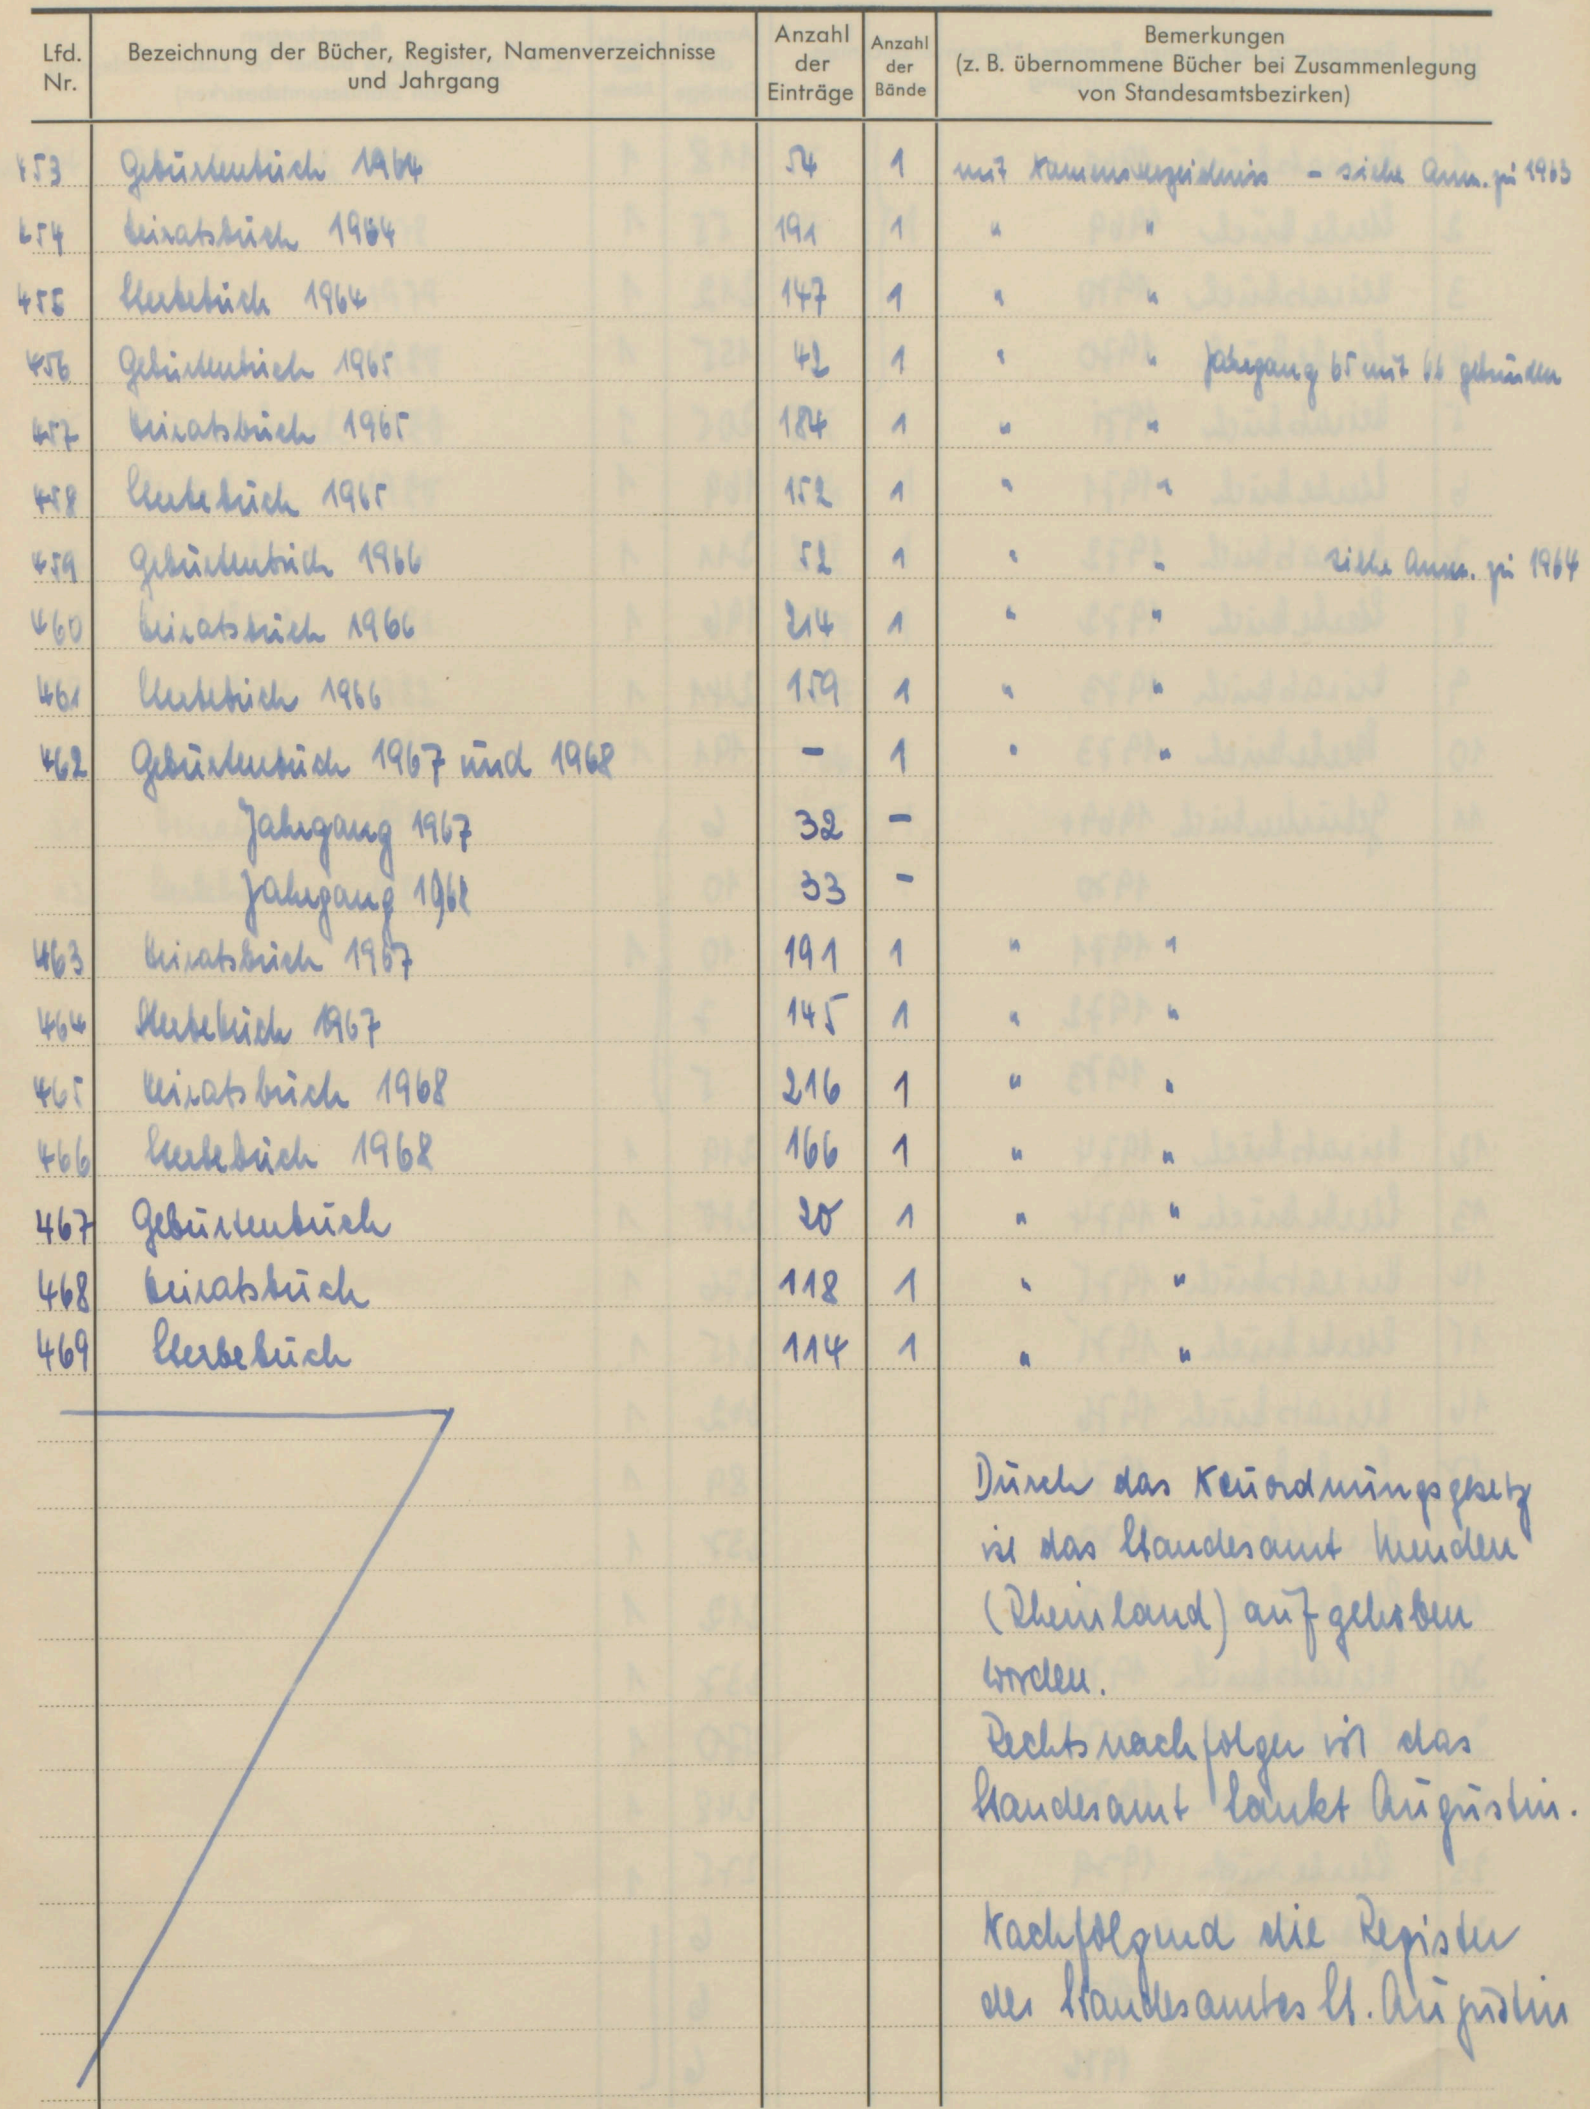 Lfd. Nr. | Bezeichnung der Bücher, Register, Namenverzeichnisse und Jahrgang | Anzahl der Einträge | Anzahl der Bände | Bemerkungen (z. B. übernommene Bücher bei Zusammenlegung von Standesamtsbezirken)
453 Geburtenbuch 1964 54 1 mit Namensverzeichnis - siehe Anm. zu 1963
454 Heiratsbuch 1964 191 1 " "
455 Sterbebuch 1964 147 1 " "
456 Geburtenbuch 1965 42 1 " " Jahrgang 65 mit 66 gebunden
457 Heiratsbuch 1965 184 1 " "
458 Sterbebuch 1965 152 1 " "
459 Geburtenbuch 1966 52 1 " " siehe Anm. zu 1964
460 Heiratsbuch 1966 214 1 " "
461 Sterbebuch 1966 159 1 " "
462 Geburtenbuch 1967 und 1968 - 1 " "
Jahrgang 1967 32 -
Jahrgang 1968 33 -
463 Heiratsbuch 1967 191 1 " "
464 Sterbebuch 1967 145 1 " "
465 Heiratsbuch 1968 216 1 " "
466 Sterbebuch 1968 166 1 " "
467 Geburtenbuch 20 1 " "
468 Heiratsbuch 118 1 " "
469 Sterbebuch 114 1 " "
Durch das Neuordnungsgesetz
ist das Standesamt Menden
(Rheinland) aufgehoben
worden.
Rechtsnachfolger ist das
Standesamt Sankt Augustin.
Nachfolgend die Register
des Standesamtes St. Augustin